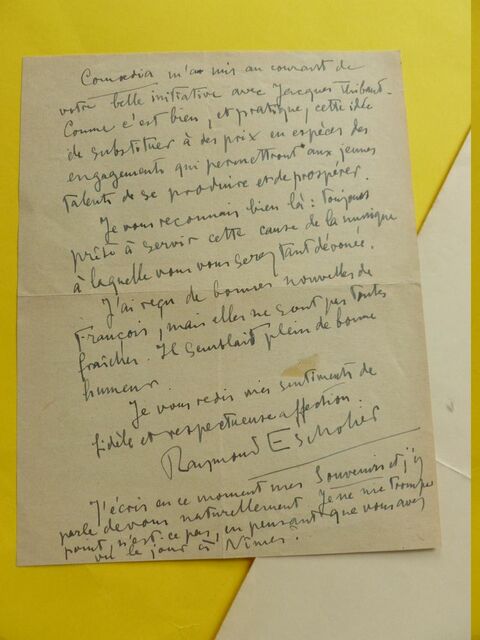 Comœdia m'a mis au courant de
votre belle initiative avec Jacques Thibaud.
Comme c'est bien, et pratique, cette idée
de substituer à des prix en espèces des
engagements qui permettront aux jeunes
talents de se produire et de prospérer.
Je vous reconnais bien là : toujours
prête à servir cette cause de la musique
à laquelle vous vous serez tant dévouée.
J'ai reçu de bonnes nouvelles de
François, mais elles ne sont pas toutes
fraîches. Il semblait plein de bonne
humeur.
Je vous redis mes sentiments de
fidèle et respectueuse affection.
Raymond Escholier
J'écris en ce moment mes Souvenirs et j'y
parle de vous naturellement. Je ne me trompe
point, n'est-ce pas, en pensant que vous avez
vu le jour à Nîmes ?